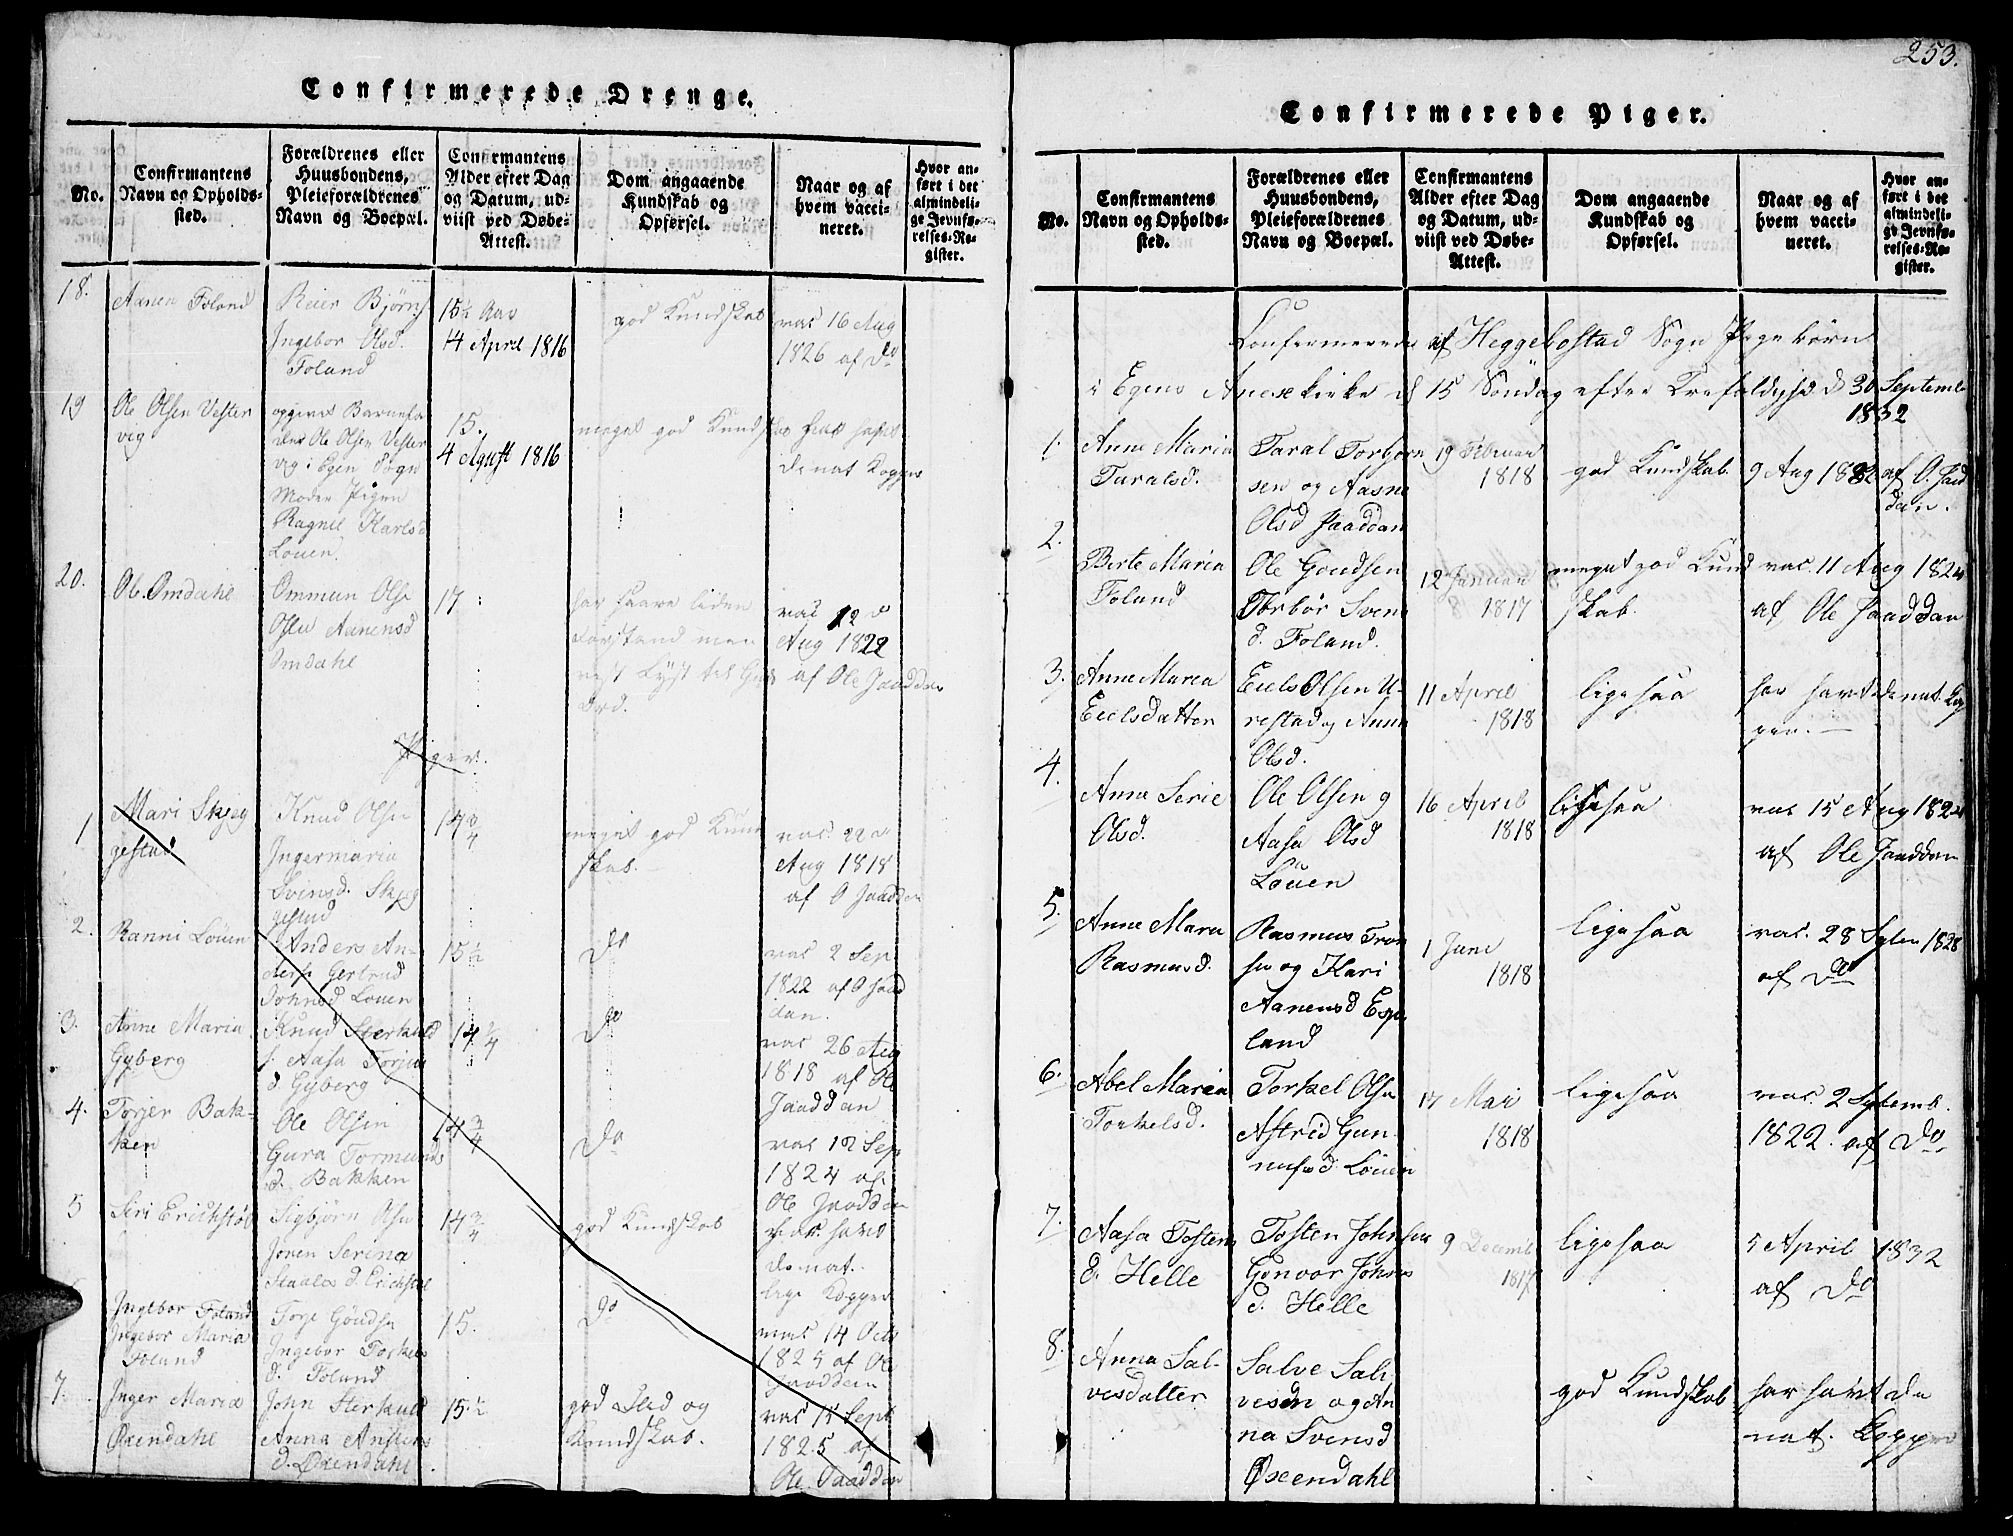 253.
Confirmerede Drenge.
No.
Confirmantens
Navn og Opholds-
sted.
Forældrenes eller
Huusbondens,
Pleieforældrenes
Navn og Boepæl.
Confirmantens
Alder efter Dag
og Datum, ud-
viist ved Døbe-
Attest.
Dom angaaende
Kundskab og
Opførsel.
Naar og af
hvem vacci-
neret.
Hvor an-
ført i det
almindeli-
ge Jevnfø-
relses-Re-
gister.
18.
Aanen Foland
Reier Bjørns
Ingebor Olsd.
Foland
15½ Aar
14 April 1816
god Kundskab
vac 16 Aug
1826 af do
19
Ole Olsen Vester
vig
opgivet Barnefa
der Ole Olsen Vester
vig i Egen Sogn
Moder Pigen
Ragnil Karlsd
Louen.
15.
4 Agust 1816
meget god Kundskab
havt
de nat Kopper
20.
Ole Omdahl
Ommun Olse
Aanensd
Omdahl
17
har saare liden
Forstand men
Lyst til Guds
Ord.
vac 12 d
Aug 1822
af Ole Jaaddan
Piger.
1
Mari Skjeg
gestad
Knud Olsen
Ingermaria
Svensd. Skjeg
gestad
14¾
meget god Kund
skab.
vac. 22 d
Aug 1818
af O Jaaddan
2.
Ranni Löuen
Anders An-
ders. Gertrud
Johnsd Louen
15½
do
vac 2 Sep
1822 af O Jaad
dan.
3.
Anne Maria
Gyberg
Knud Sterkuld
s. Aasa Torjus
d Gyberg
14¾
do
vac 26 Aug
1818 af Ole
Jaaddan
4.
Torjer Bak-
ken
Ole Olsen
Gura Tormunds
d. Bakken
14¾
do
vac 12 Sep
1824 af
Ole Jaaddan
5
Siri Erickstöl
Sigbjørn Olsen
Joren Serina
Staales d. Erickstöl
14¾
god Kundskab
har havd
de nat.
lige Kopper
Ingebor Foland
Ingebor Maria
Foland
Torje Göudsen
Ingebor Torkels
d. Foland
15.
do
vac 14 Octo
1825 af Ole
Jaaddan
7.
Inger Maria
Øxendahl
John Sterkuld
Anna Anstens
d. Øxendahl
15½
god Flid og
Kundskab.
vac 15 Sept
1825 af
Ole Jaaddan
Confirmerede Piger.
No.
Confirmantens
Navn og Opholds-
sted.
Forældrenes eller
Huusbondens,
Pleieforældrenes
Navn og Boepæl.
Confirmantens
Alder efter Dag
og Datum, ud-
viist ved Døbe-
Attest.
Dom angaaende
Kundskab og
Opførsel.
Naar og af
hvem vacci-
neret.
Hvor an-
ført i det
almindeli-
ge Jevnfø-
relses-Re-
gister.
Confermerede af Heggebostad Sogn Pigebörn
i Egens Anexkirke d 15 Söndag efter Trefoldighd d 30 Septemb
1832
1.
Anne Maria
Taralsd.
Taral Torbjorn
sen og Aasne
Olsd Jaaddan
19 Februar
1818
god Kundskab
9 Aug 1832 af O. Jaad
dan.
2.
Berte Maria
Foland
Ole Goudsen
Torbör Svens
d. Foland.
12 Januar
1817
meget god Kund
skab.
vac. 11 Aug 1824
af Ole Jaaddan
3.
Anne Maria
Eielsdatter
Eiels Olsen U-
restad og Anna
Olsd.
11 April
1818
ligesaa
har havt de nat. Kop
per. —
4.
Anne Serie
Olsd.
Ole Olsen og
Aasa Olsd
Löuen
16 April
1818
ligesaa
vac 15 Aug 1824
af Ole Jaaddan
5.
Anne Maria
Rasmusd.
Rasmus Tron
sen og Kari
Aanensd Espe
land
1 Juni
1818
ligesaa
vac. 28 Septem 1828
af do
6.
Abel Maria
Torkelsd.
Torkel Olsen
Astrid Gun
nufsd. Löuen
17 Mai
1818
ligesaa
vac. 2 Septemb.
1822. af do
7.
Aasa Tostens
d. Helle
Tosten Johnsen
Gunvor Johns
d. Helle
9 Decemb
1817
ligesaa
5 April 1832
af do
8.
Anna Sal-
vesdatter
Salve Sal-
vesen og An
na Svensd
Øxendahl
god Kundskab
har havt de
nat. Kopper